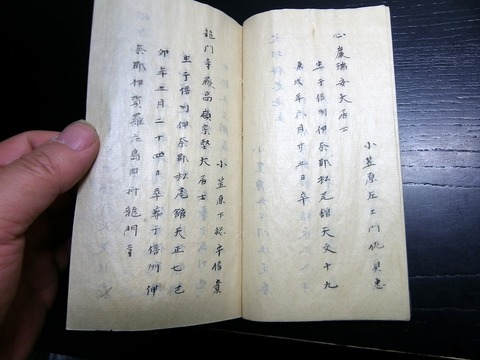 小笠原左エ門佐貞
心巌瑞安大居士
生于信州伊奈郡松尾館天文十九
庚戌年六月廿日卒
小笠原下総守信貴
龍门寺殿高嶺宗堅大居士
生于信州伊奈郡松尾館天正七己
卯年五月二十四日卒葬于信州伊
奈郡伊賀羅庄島田村龍门寺